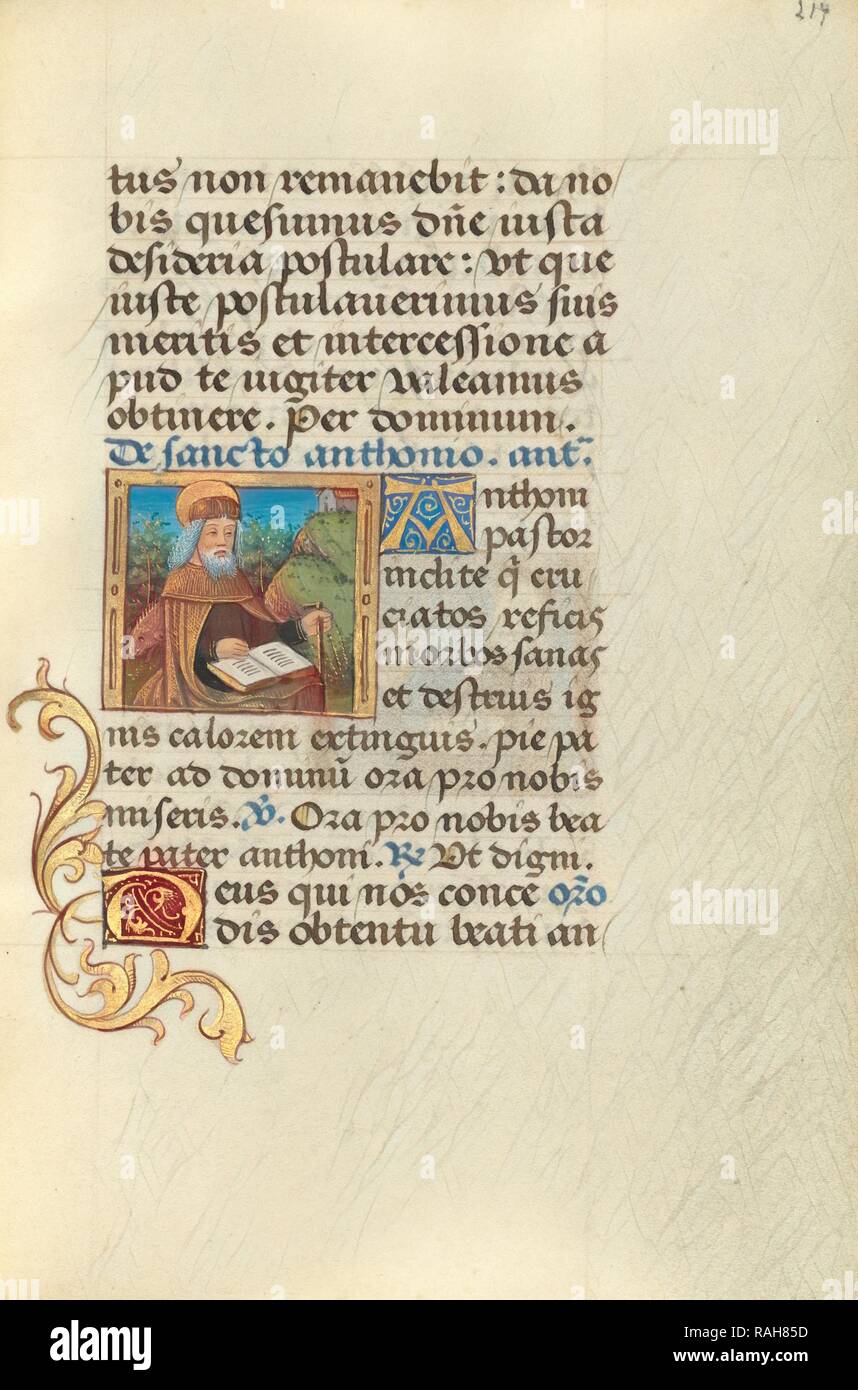 217
tus non remanebit : da no
bis quesumus dñe iusta
desideria postulare : vt que
iuste postulauerimus suis
meritis et intercessione a
pud te iugiter valeamus
obtinere. Per dominum.
De sancto anthonio. ant.
Anthoni
pastor
inclite q̃ cru
ciatos reficis
morbos sanas
et destruis ig
nis calorem extinguis. pie pa
ter ad dominũ ora pro nobis
miseris. V. Ora pro nobis bea
te pater anthoni. Re Vt digni.
Deus qui nos conce oro
dis obtentu beati an
alamy
alamy
alamy
Image ID: RAH85D
www.alamy.com